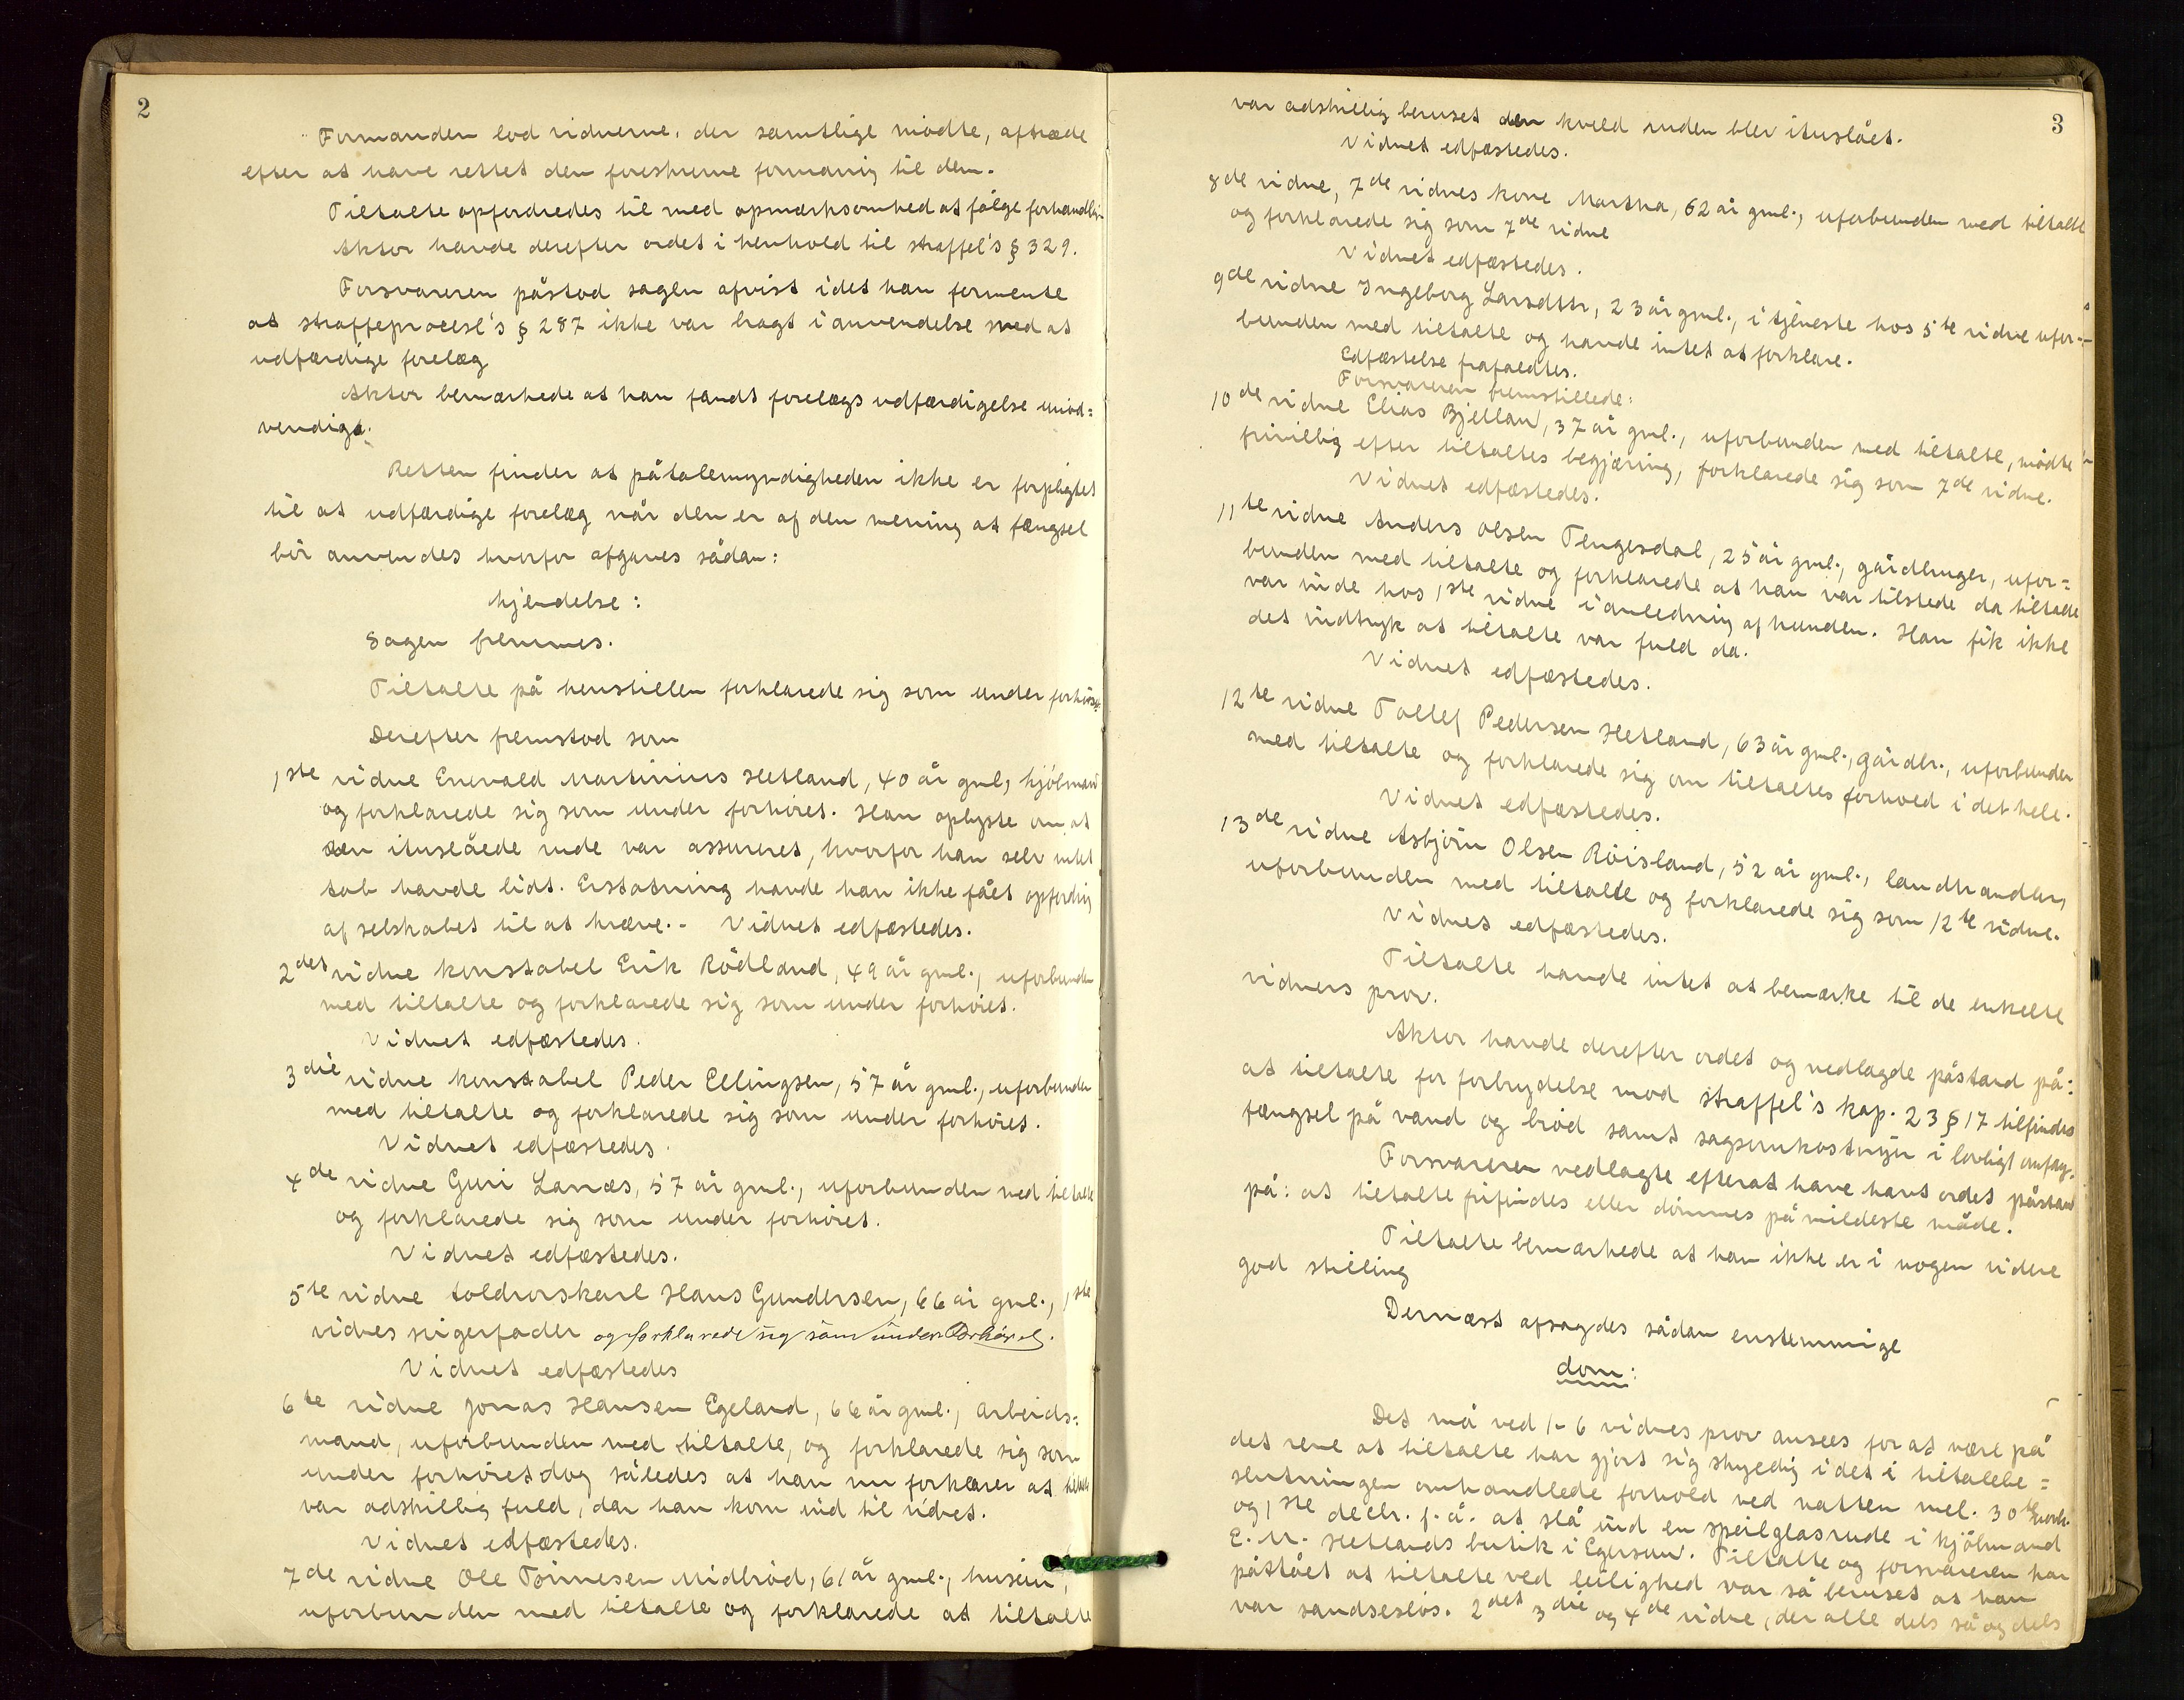 2
Formanden lod vidnerne, der samtlige mødte, aftræde
efter at have rettet den foreskrevne formaning til dem.
Tiltalte opfordredes til med opmærksomhed at følge forhandlin
Aktor havde derefter ordet i henhold til straffel's § 329.
Forsvareren påstod sagen afvist idet han formente
at straffeprocesl's § 287 ikke var bragt i anvendelse med at
udfærdige forelæg
Aktor bemærkede at han fandt forelægs udfærdigelse unød=
vendigt.
Retten finder at påtalemyndigheden ikke er forpligtet
til at udfærdige forelæg når den er af den mening at fængsel
bør anvendes hvorfor afgaves sådan:
kjendelse:
Sagen fremmes.
Tiltalte på henstillen forklarede sig som under forhøret.
Derefter fremstod som
1ste vidne Enevald Martinius Hetland, 40 år gml, kjøbmand
og forklarede sig som under forhøret. Han oplyste om at
den ituslåede rude var assureret, hvorfor han selv intet
tab havde lidt. Erstatning havde han ikke fået opfordring
af selskabet til at hæve.- Vidnet edfæstedes.
2det vidne konstabel Erik Rødland, 49 år gml., uforbunden
med tiltalte og forklarede sig som under forhøret.
Vidnet edfæstedes.
3die vidne konstabel Peder Ellingsen, 57 år gml., uforbunden
med tiltalte og forklarede sig som under forhøret.
Vidnet edfæstedes.
4de vidne Guri Lanæs, 57 år gml., uforbunden med tiltalte
og forklarede sig som under forhøret.
Vidnet edfæstedes.
5te vidne toldrorskarl Hans Gundersen, 66 år gml., 1ste
vidnes svigerfader og forklarede sig som under Forhøret.
Vidnet edfæstedes
6te vidne Jonas Hansen Egeland, 66 år gml., arbeids=
mand, uforbunden med tiltalte, og forklarede sig som
under forhøret dog således at han nu forklarer at tiltalte
var adskillig fuld, da han kom ind til vidnet.
Vidnet edfæstedes.
7de vidne Ole Tønnesen Midbrød, 61 år gml., huseier,
uforbunden med tiltalte og forklarede at tiltalte
3
var adskillig beruset den kveld ruden blev ituslået.
Vidnet edfæstedes.
8de vidne, 7de vidnes kone Martha, 62 år gml., uforbunden med tiltalte
og forklarede sig som 7de vidne
Vidnet edfæstedes.
9de vidne Ingeborg Larsdttr, 23 år gml., i tjeneste hos 5te vidne ufor-
bunden med tiltalte og havde intet at forklare.
Edfæstelse frafaldtes.
Forsvareren fremstillede:
10de vidne Elias Bjelland, 37 år gml., uforbunden med tiltalte, mødte
frivillig efter tiltaltes begjæring, forklarede sig som 7de vidne.
Vidnet edfæstedes.
11te vidne Anders Olsen Tengesdal, 25 år gml., gårdbruger, ufor=
bunden med tiltalte og forklarede at han var tilstede da tiltalte
var inde hos 1ste vidne i anledning af hunden. Han fik ikke
det indtryk at tiltalte var fuld da.
Vidnet edfæstedes.
12te vidne Tollef Pedersen Hetland, 63 år gml., gårdbr., uforbunden
med tiltalte og forklarede sig om tiltaltes forhold i det hele.
Vidnet edfæstedes.
13de vidne Asbjørn Olsen Røisland, 52 år gml., landhandler,
uforbunden med tiltalte og forklarede sig som 12te vidne.
Vidnet edfæstedes.
Tiltalte havde intet at bemærke til de enkelte
vidners prov.
Aktor havde derefter ordet og nedlagde påstand på:
at tiltalte for forbrydelse mod straffel's kap. 23 § 17 tilfindes
fængsel på vand og brød samt sagsomkostninger i lovligt omfag.
Forsvareren nedlagte efterat have havt ordet påstand
på: at tiltalte frifindes eller dømmes på mildeste måde.
Tiltalte bemærkede at han ikke er i nogen videre
god stilling
Dernæst afsagdes sådan enstemmige
dom:
Det må ved 1-6 vidnes prov ansees for at være på
det rene at tiltalte har gjort sig skyldig i det i tiltalebe=
slutningen omhandlede forhold ved natten mel. 30te novb.
og 1ste decbr. f.å. at slå ind en speilglasrude i kjøbmand
E. M. Hetlands butik i Egersund. Tiltalte og forsvareren har
påstået at tiltalte ved leilighed var så beruset at han
var sandsesløs. 2det 3die og 4de vidne, der alle dels så og dels